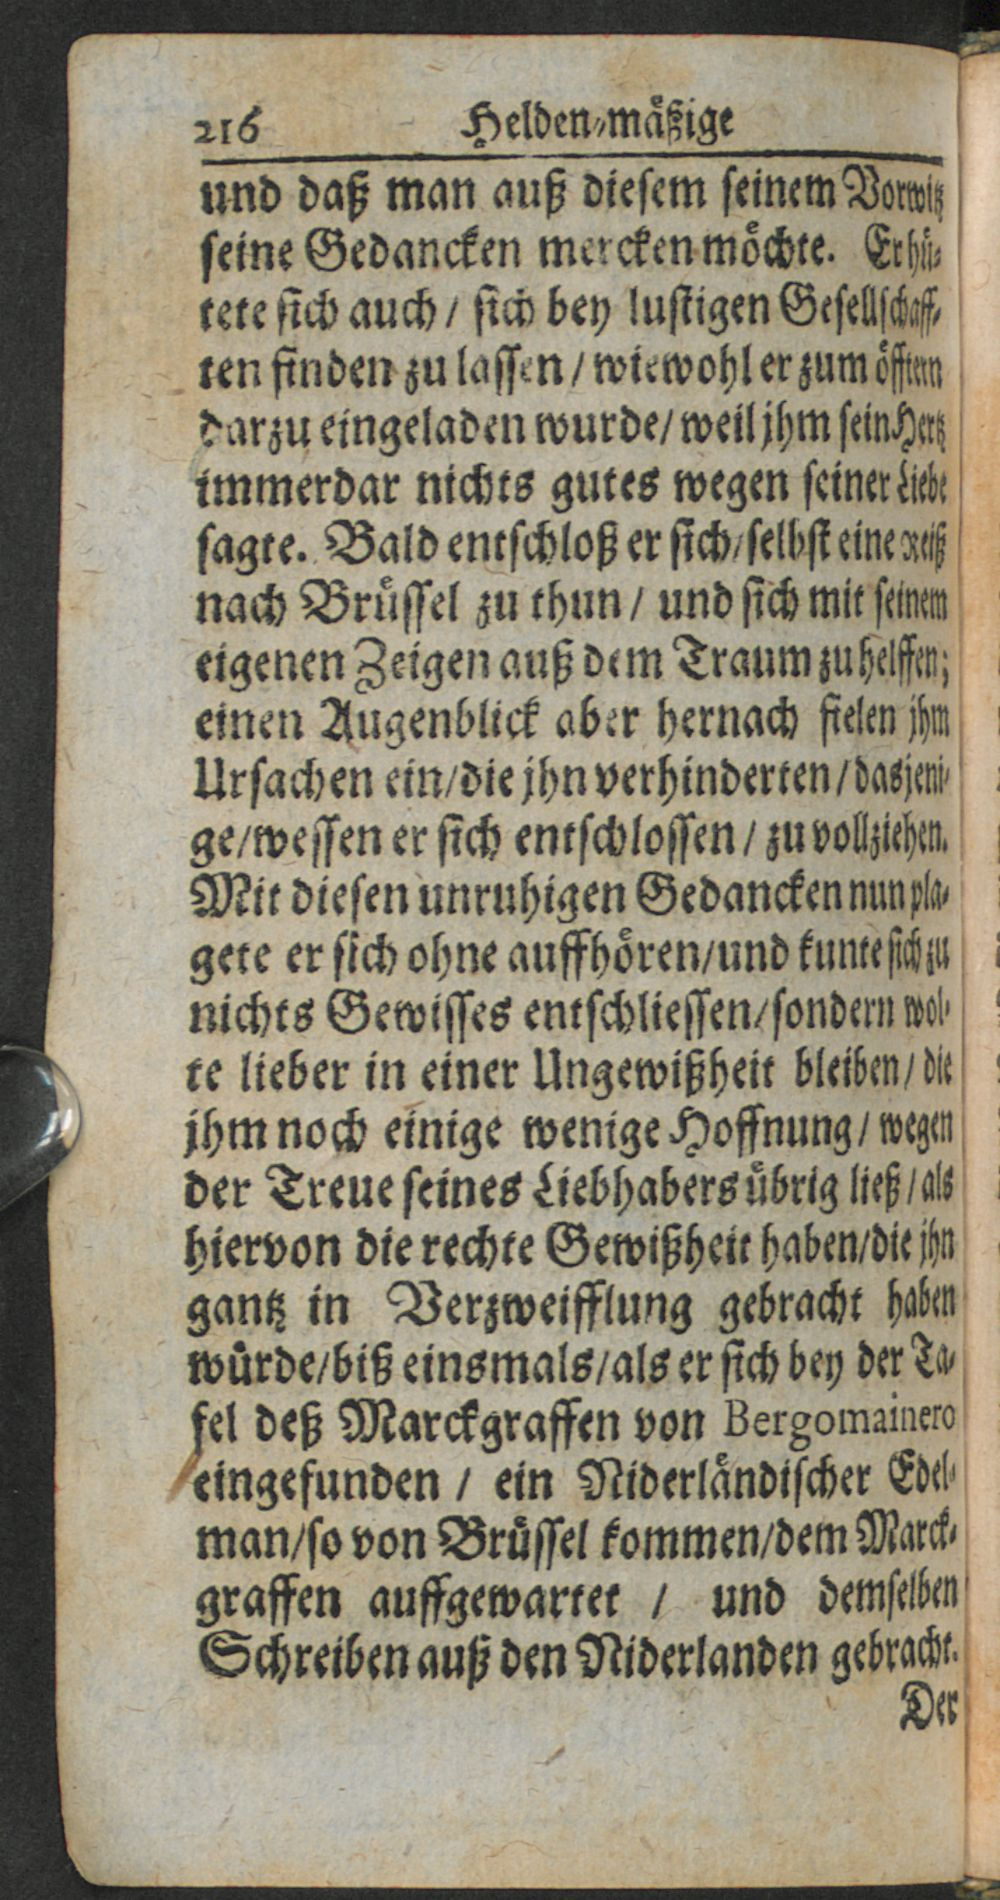 216 Helden-mäßige
und daß man auß diesem seinem Vorwitz
seine Gedancken mercken möchte. Er hü-
tete sich auch / sich bey lustigen Gesellschaff-
ten finden zu lassen / wiewohl er zum öfftern
darzu eingeladen wurde/ weil jhm sein Hertz
immerdar nichts gutes wegen seiner Liebe
sagte. Bald entschloß er sich/ selbst eine Reiß
nach Brüssel zu thun / und sich mit seinem
eigenen Zeigen auß dem Traum zu helffen;
einen Augenblick aber hernach fielen jhm
Ursachen ein/ die jhn verhinderten / dasjeni-
ge/ wessen er sich entschlossen / zu vollziehen.
Mit diesen unruhigen Gedancken nun pla-
gete er sich ohne auffhören/ und kunte sich zu
nichts Gewisses entschliessen/ sondern wol-
te lieber in einer Ungewißheit bleiben / die
jhm noch einige wenige Hoffnung / wegen
der Treue seines Liebhabers übrig ließ / als
hiervon die rechte Gewißheit haben/ die jhn
gantz in Verzweifflung gebracht haben
würde/ biß einsmals/ als er sich bey der Ta-
fel deß Marckgraffen von Bergomainero
eingefunden / ein Niderländischer Edel-
man/ so von Brüssel kommen/ dem Marck-
graffen auffgewartet / und demselben
Schreiben auß den Niderlanden gebracht.
Der